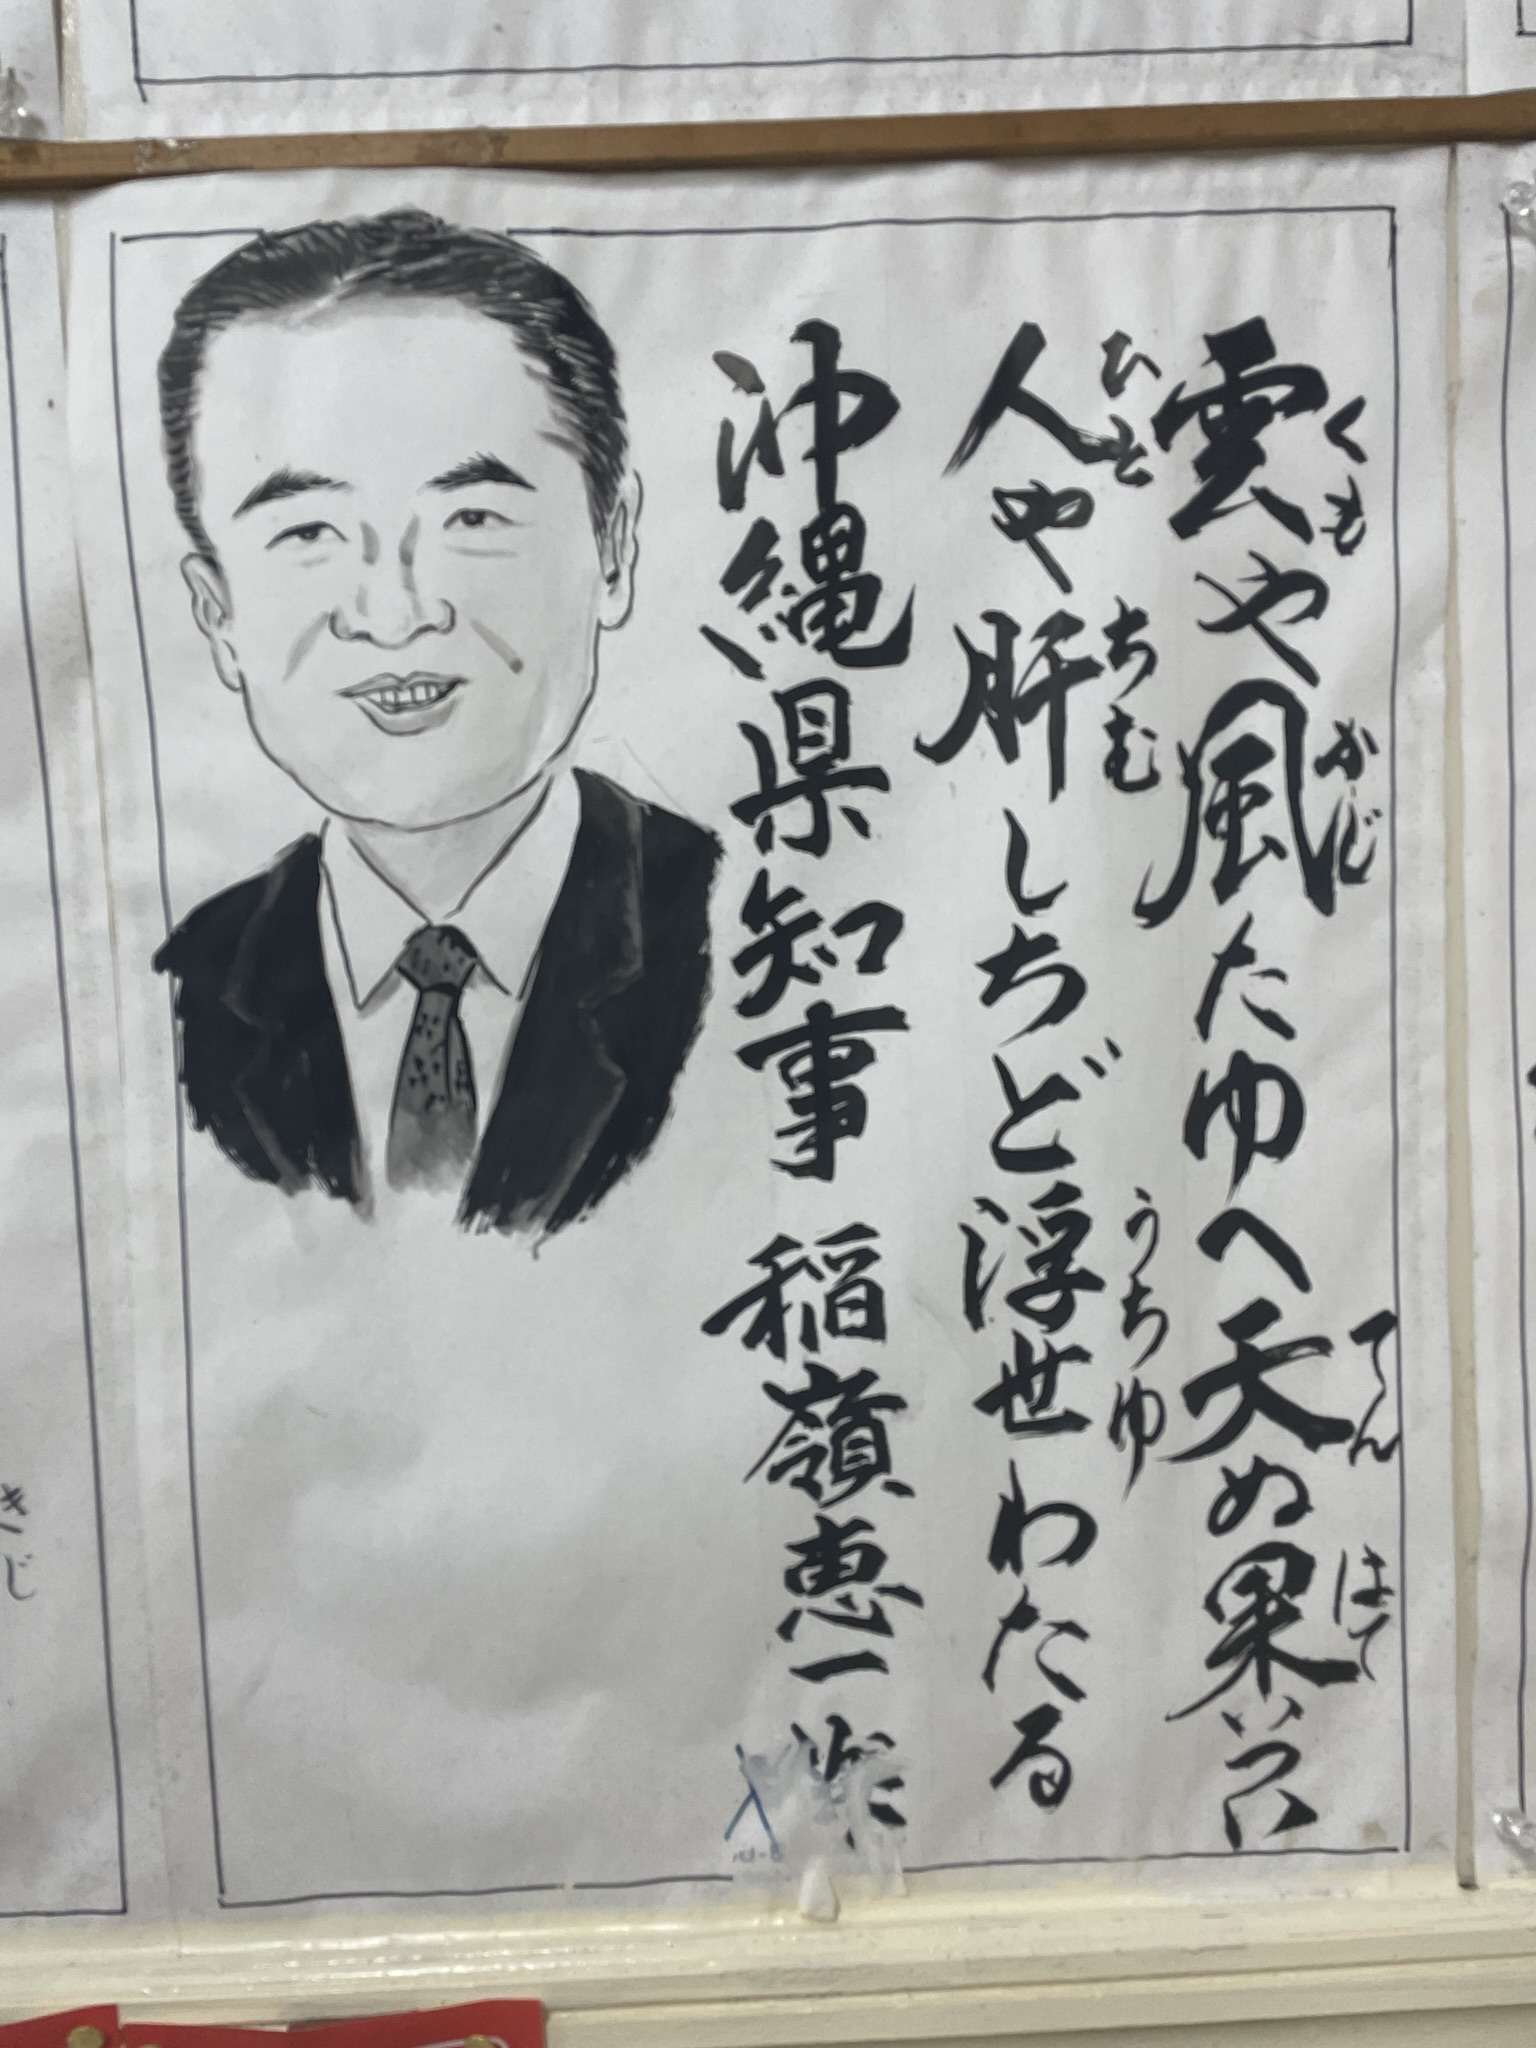 雲や風たゆへ天ぬ果いつい
くも かじ てん はて
人や肝しちど浮世わたる
ひと ちむ うちゆ
沖縄県知事 稲嶺恵一
きじ